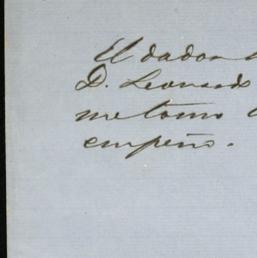 El dador
D. Leonardo
me tomo
empeño.